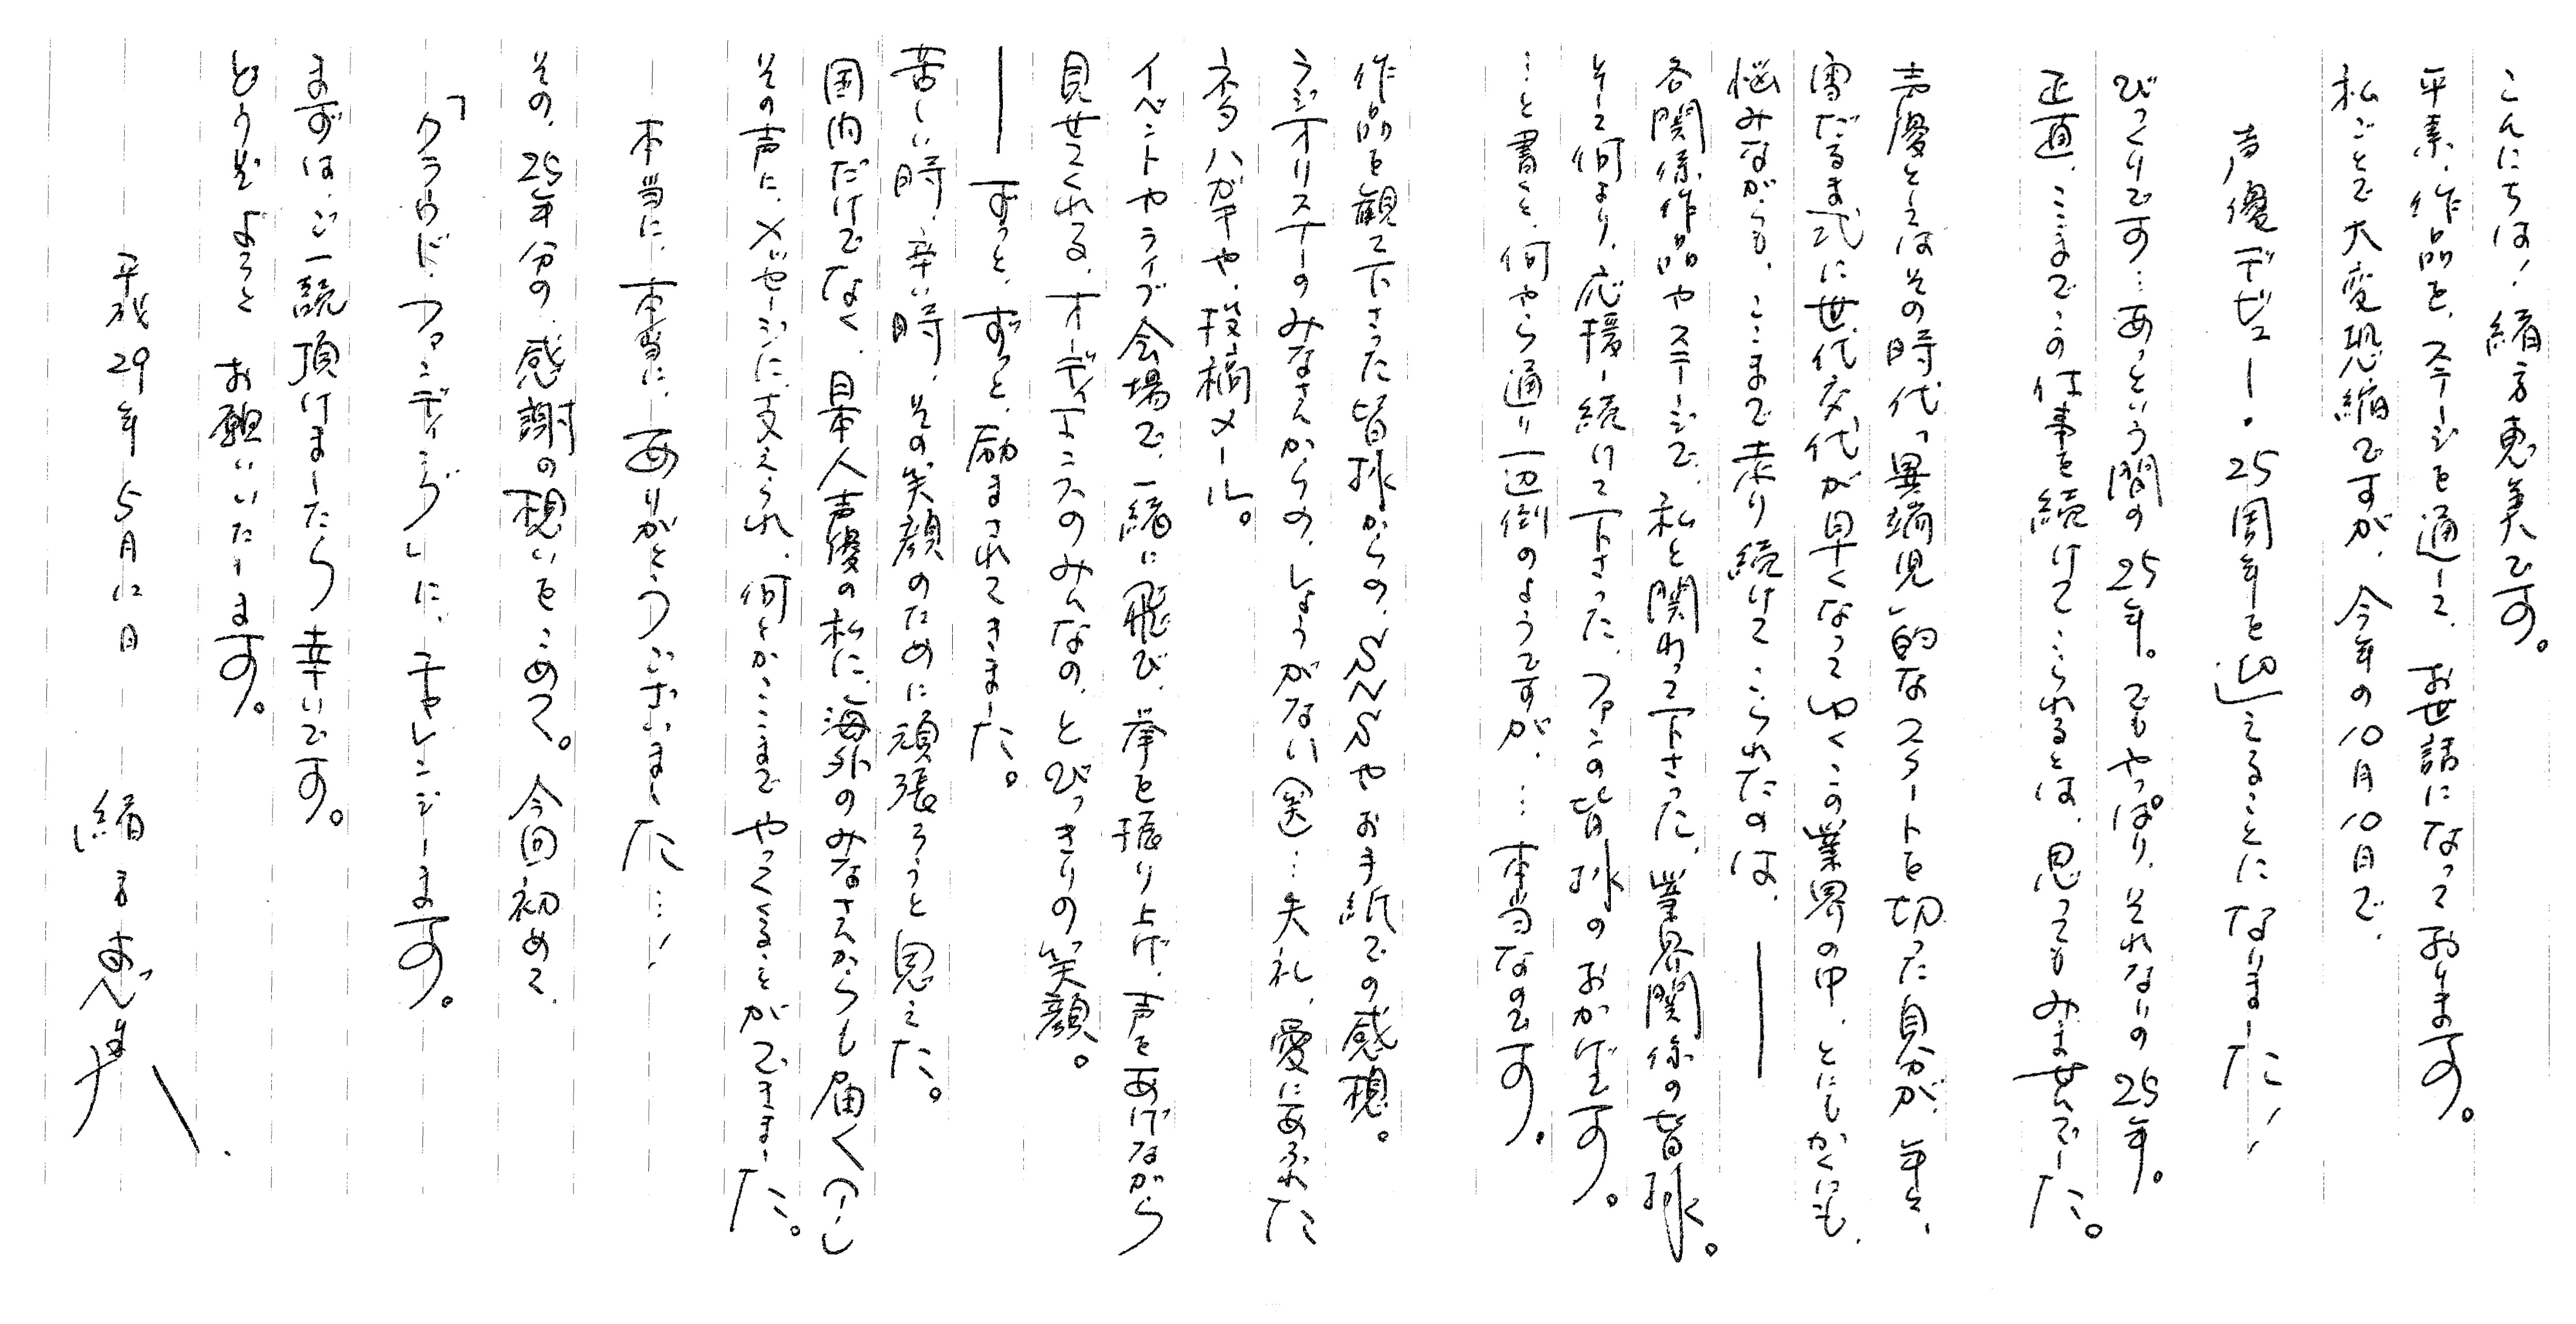 こんにちは！緒方恵美です。
平素、作品を、ステージを通して、お世話になっております。
私ごとで大変恐縮ですが、今年の10月10日で、
声優デビュー・25周年を迎えることになりました！
びっくりです…あっという間の25年。でもやっぱり、それなりの25年。
正直、ここまでこの仕事を続けてこられるとは、思ってもみませんでした。
声優としてはその時代「異端児」的なスタートを切った自分が、年々、
雪だるま式に世代交代が早くなってゆくこの業界の中、とにもかくにも、
悩みながらも、ここまで走り続けてこられたのは、――
各関係作品やステージで、私と関わって下さった、業界関係の皆様。
そして何より、応援し続けて下さった、ファンの皆様のおかげです。
…と書くと、何やら通り一辺倒のようですが、…本当なのです。
作品を観て下さった皆様からの、SNSやお手紙での感想。
ラジオリスナーのみなさんからの、しょうがない(笑)…失礼、愛にあふれた
ネタハガキや、投稿メール。
イベントやライブ会場で、一緒に飛び、拳を振り上げ、声をあげながら
見せてくれる、オーディエンスのみんなの、とびっきりの笑顔。
――ずっと、ずっと、励まされてきました。
苦しい時、辛い時、その笑顔のために頑張ろうと思えた。
国内だけでなく、日本人声優の私に、海外のみなさんからも届く
その声に、メッセージに、支えられ、何とかここまでやってくることができました。
本当に、本当に、ありがとうございました…！
その、25年分の、感謝の想いをこめて。今回初めて、
「クラウド・ファンディング」に、チャレンジします。
まずは、ご一読頂けましたら幸いです。
どうぞよろしくお願いいたします。
平成29年5月12日 緒方恵美